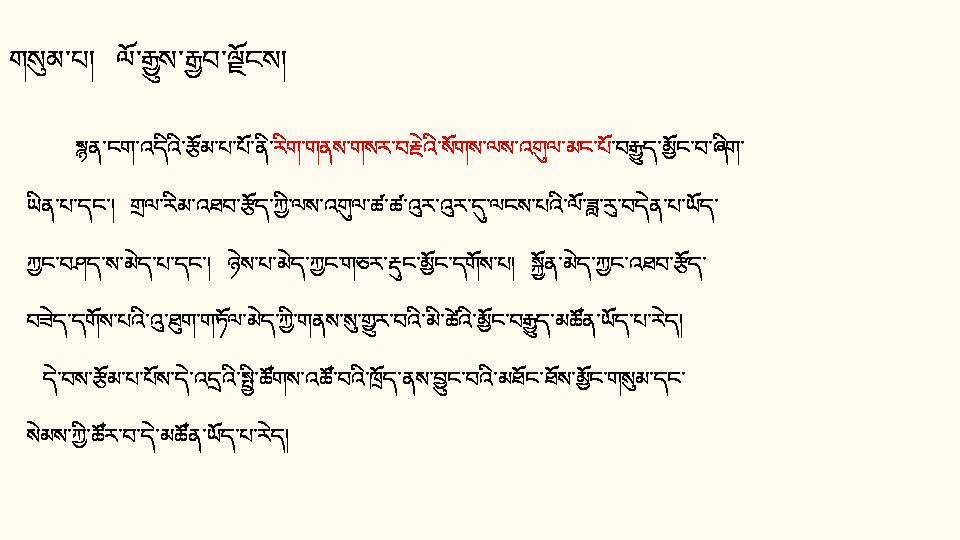 གསུམ་པ།  ལོ་རྒྱུས་རྒྱབ་ལྗོངས།
སྙན་ངག་འདིའི་རྩོམ་པ་པོ་ནི་རིག་གནས་གསར་བརྗེའི་སོགས་ལས་འགུལ་མང་པོ་བརྒྱུད་མྱོང་བ་ཞིག་
ཡིན་པ་དང་།  གྲལ་རིམ་འཐབ་རྩོད་ཀྱི་ལས་འགུལ་ཚ་ཚ་འུར་འུར་དུ་ལངས་པའི་ལོ་ཟླ་རུ་བདེན་པ་ཡོད་
ཀྱང་བཤད་ས་མེད་པ་དང་།  ཉེས་པ་མེད་ཀྱང་གཅར་རྡུང་མྱོང་དགོས་པ།  སྐྱོན་མེད་ཀྱང་འཐབ་རྩོད་
བཟེད་དགོས་པའི་འུ་ཐུག་གཏོལ་མེད་ཀྱི་གནས་སུ་གྱུར་བའི་མི་ཚེའི་མྱོང་བརྒྱུད་མཚོན་ཡོད་པ་རེད།
དེ་བས་རྩོམ་པ་པོས་དེ་འདྲའི་སྤྱི་ཚོགས་འཚོ་བའི་ཁྲོད་ནས་བྱུང་བའི་མཐོང་ཐོས་མྱོང་གསུམ་དང་
སེམས་ཀྱི་ཚོར་བ་དེ་མཚོན་ཡོད་པ་རེད།